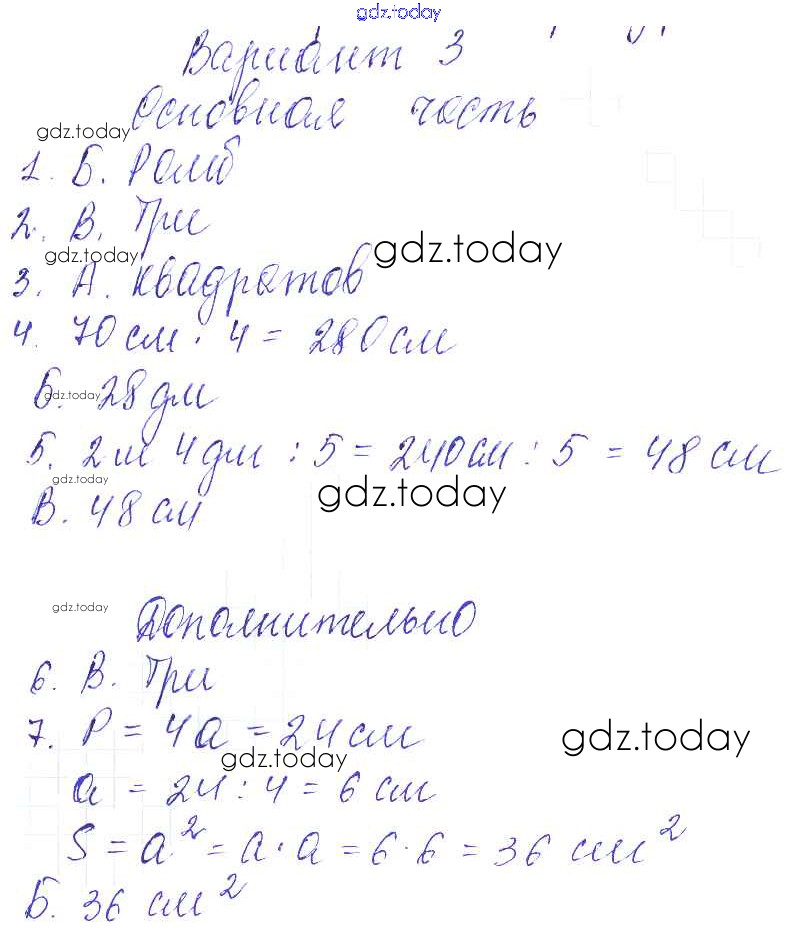 gdz.today
Вариант 3
Основная часть
gdz.today
1. Б. Ромб
2. В. Три
gdz.today
gdz.today
3. А. квадратов
4. 70 см · 4 = 280 см
Б. 28 дм
gdz.today
5. 2 м 4 дм : 5 = 240 см : 5 = 48 см
gdz.today
gdz.today
В. 48 см
gdz.today
Дополнительно
6. В. Три
7. P = 4a = 24 см
gdz.today
gdz.today
a = 24 : 4 = 6 см
S = a² = a · a = 6 · 6 = 36 см²
Б. 36 см²